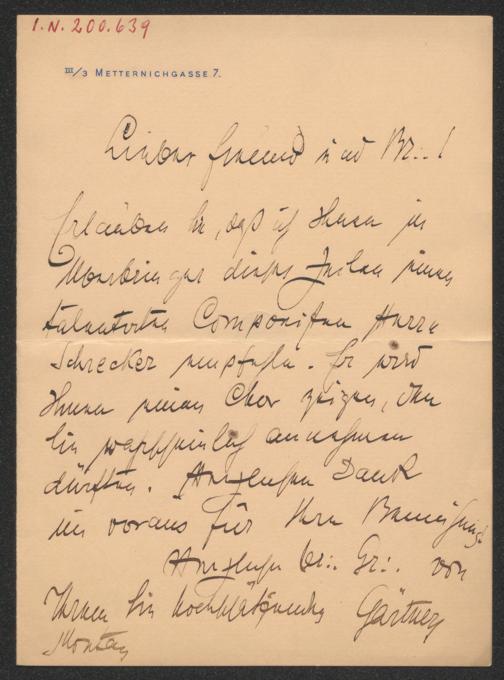 I.N. 200.639
III/3 METTERNICHGASSE 7.
Lieber Freund und Br∴!
Erlauben Sie, daß ich Ihnen im
Überbringer dieser Zeilen einen
talentvollen Componisten Herrn
Schrecker empfehle. Er wird
Ihnen einen Chor zeigen, den
Sie wahrscheinlich annehmen
dürften. Herzlichen Dank
im voraus für Ihre Bemühung.
Herzlichen br∴ Gr∴ von
Ihrem Sie hochschätzenden Gärtner
Montag